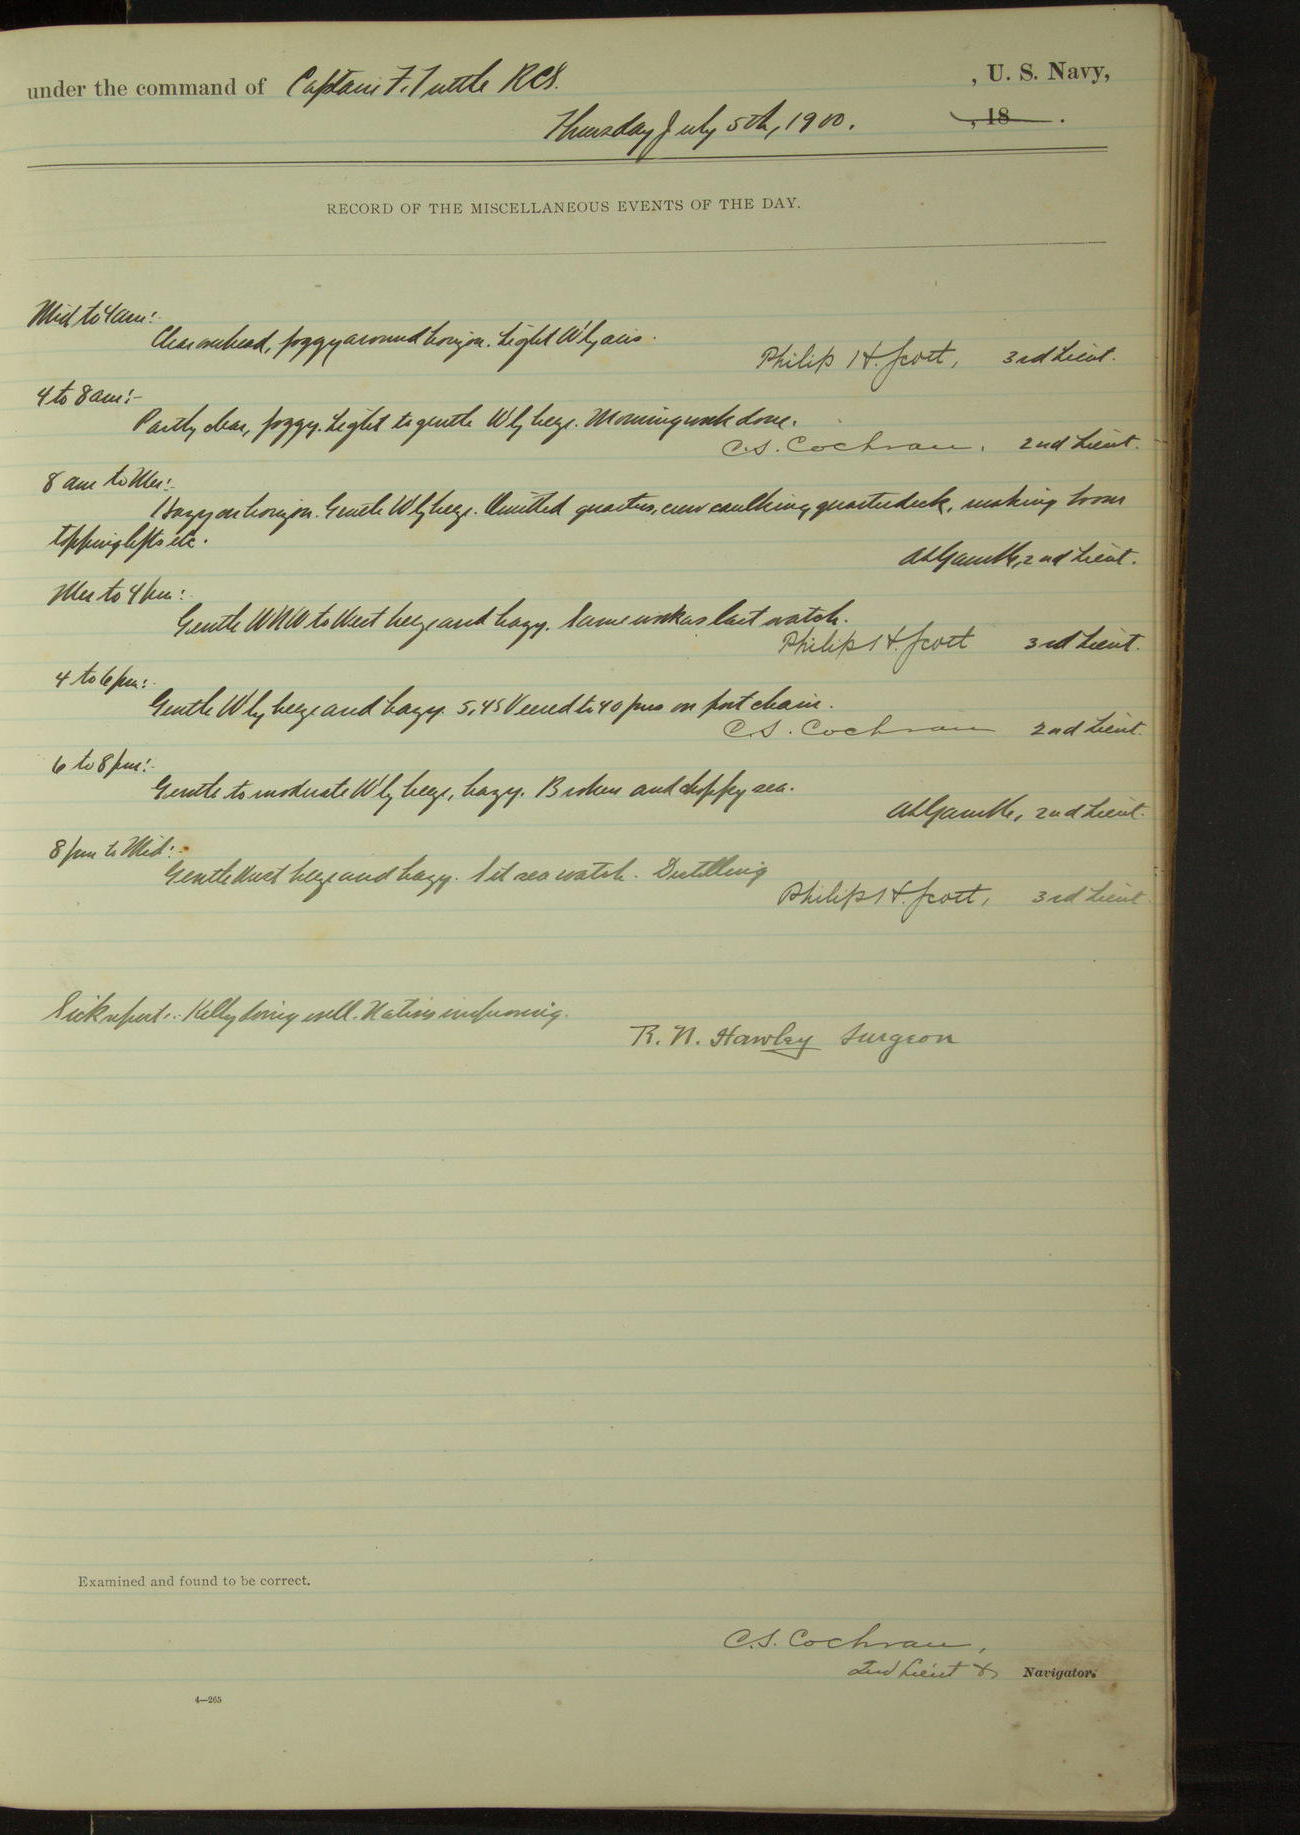 under the command of Captain F. Tuttle RCS. , U. S. Navy,
Thursday July 5th, 1900. , 18 .
RECORD OF THE MISCELLANEOUS EVENTS OF THE DAY.
Mid to 4 am:-
Clear overhead, foggy around horizon. Light W'ly airs.
Philip H. Scott, 3rd Lieut.
4 to 8 am:-
Partly clear, foggy. Light to gentle W'ly breeze. Morning work done.
C.S. Cochran. 2nd Lieut.
8 am to Mer:-
Hazy on horizon. Gentle W'ly breeze. Omitted quarters, crew caulking quarterdeck, making boom
topping lifts etc.
2nd Lieut.
Mer to 4 pm:
Gentle WNW to West breeze and hazy. Same work as last watch.
Philip H. Scott 3rd Lieut.
4 to 6 pm:-
Gentle W'ly breeze and hazy. 5,45 Veered to 40 fms on port chain.
C.S. Cochran 2nd Lieut.
6 to 8 pm:-
Gentle to moderate W'ly breeze, hazy. Broken and choppy sea.
2nd Lieut.
8 pm to Mid:-
Gentle West breeze and hazy. Set sea watch. Distilling
Philip H. Scott, 3rd Lieut.
Sick report:- Kelly doing well. improving.
R. N. Hawley Surgeon
Examined and found to be correct.
C.S. Cochran,
2nd Lieut & Navigator.
4—265